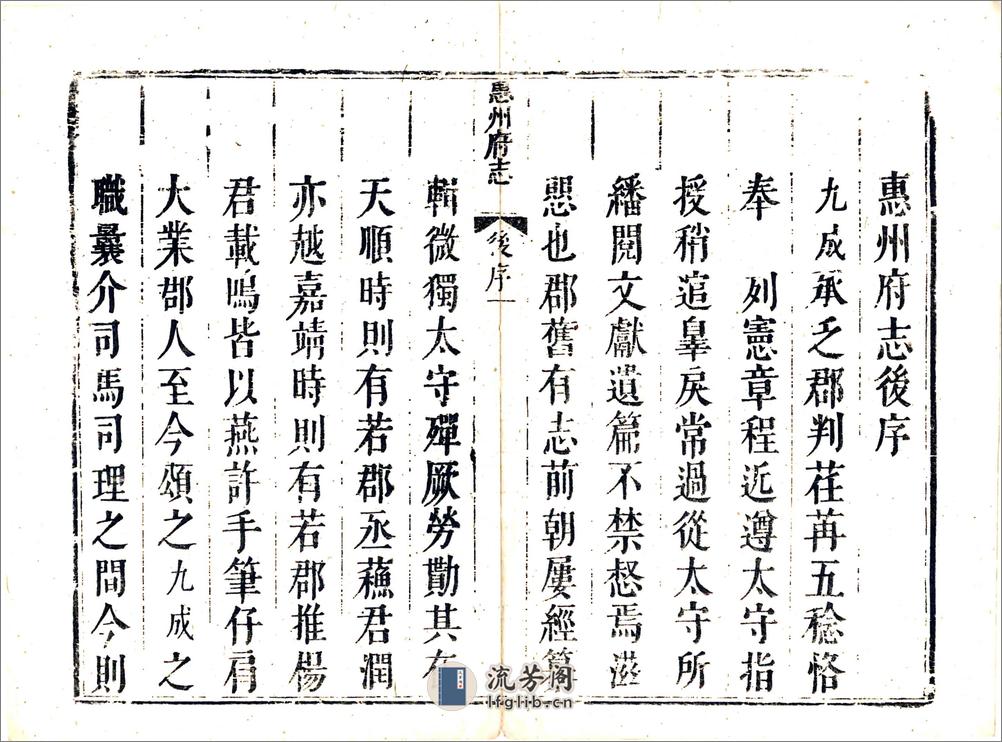 惠州府志後序
九成承乏郡判荏苒五稔恪
奉　列憲章程近遵太守指
授稍逭辠戾常過從太守所
繙閱文獻遺篇不禁惄焉滋
懇也郡舊有志前朝屢經纂
惠州府志
後序
一
輯微獨太守殫厥勞勩其在
天順時則有若郡丞蘓君潤
亦越嘉靖時則有若郡推楊
君載鳴皆以燕許手筆仔肩
大業郡人至今頌之九成之
職曩介司馬司理之間今則
流芳阁
lfglib.cn